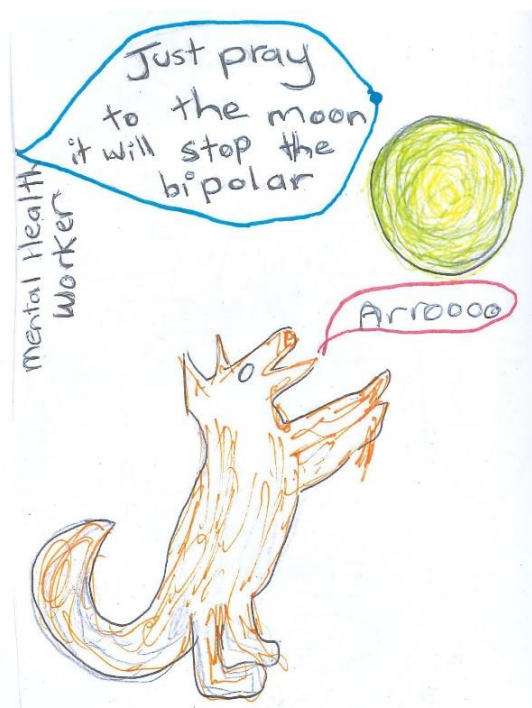 Just pray
to the moon
it will stop the
bipolar
mental Health
Worker
Arroooo